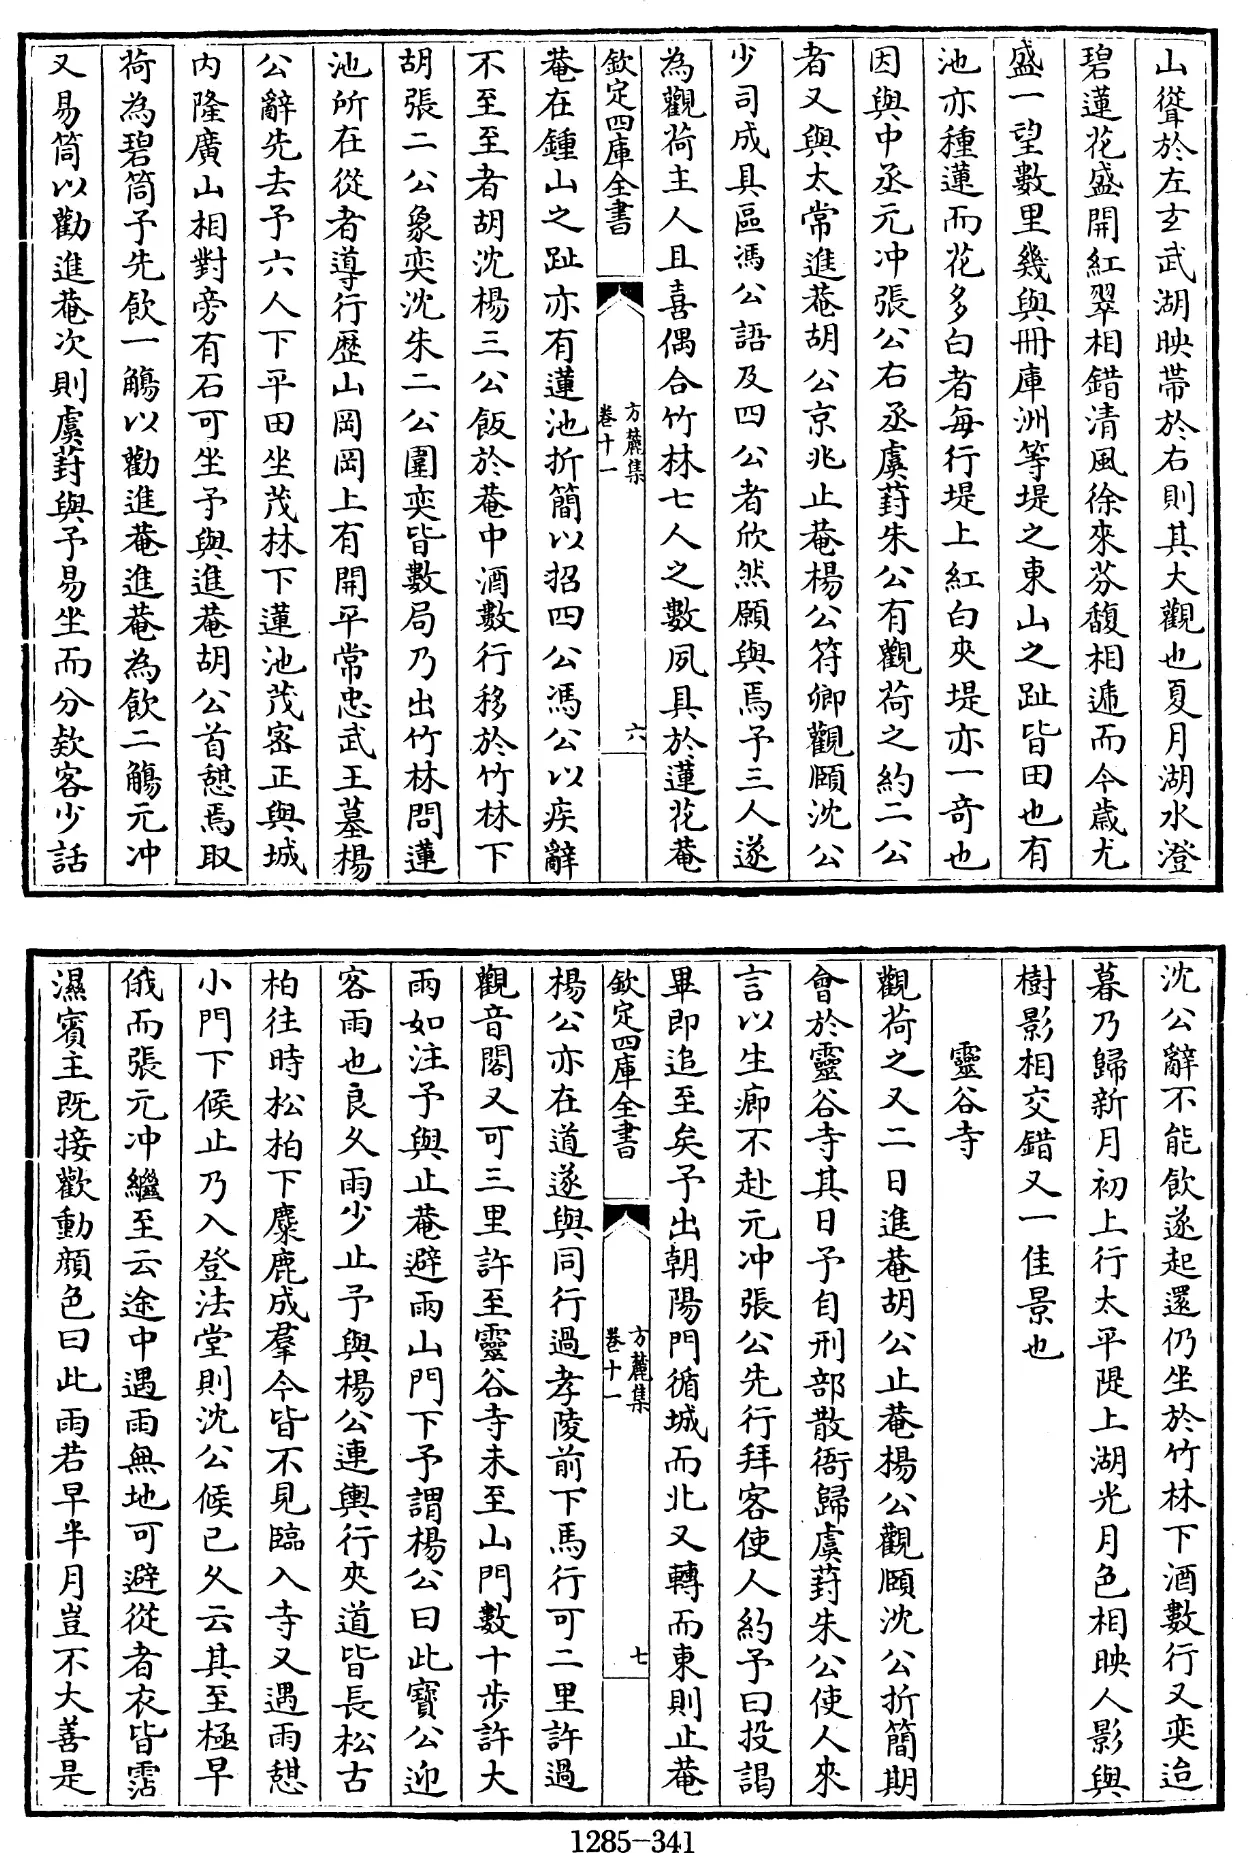 山聳於左玄武湖映帶於右則其大觀也夏月湖水澄
碧蓮花盛開紅翠相錯清風徐來芬馥相遞而今歲尤
盛一望數里幾與冊庫洲等堤之東山之趾皆田也有
池亦種蓮而花多白者每行堤上紅白夾堤亦一奇也
因與中丞元冲張公右丞虞葑朱公有觀荷之約二公
者又與太常進菴胡公京兆止菴楊公符卿觀頤沈公
少司成具區馮公語及四公者欣然願與焉予三人遂
為觀荷主人且喜偶合竹林七人之數夙具於蓮花菴
欽定四庫全書
方麓集
卷十一
六
菴在鍾山之趾亦有蓮池折簡以招四公馮公以疾辭
不至至者胡沈楊三公飯於菴中酒數行移於竹林下
胡張二公象奕沈朱二公圍奕皆數局乃出竹林問蓮
池所在從者導行歷山岡岡上有開平常忠武王墓楊
公辭先去予六人下平田坐茂林下蓮池茂密正與城
内隆廣山相對旁有石可坐予與進菴胡公首憩焉取
荷為碧筒予先飲一觴以勸進菴進菴為飲二觴元冲
又易筒以勸進菴次則虞葑與予易坐而分欵客少話
沈公辭不能飲遂起還仍坐於竹林下酒數行又奕迨
暮乃歸新月初上行太平隄上湖光月色相映人影與
樹影相交錯又一佳景也
靈谷寺
觀荷之又二日進菴胡公止菴楊公觀頤沈公折簡期
會於靈谷寺其日予自刑部散衙歸虞葑朱公使人來
言以生癤不赴元冲張公先行拜客使人約予曰投謁
畢即追至矣予出朝陽門循城而北又轉而東則止菴
欽定四庫全書
方麓集
卷十一
七
楊公亦在道遂與同行過孝陵前下馬行可二里許過
觀音閣又可三里許至靈谷寺未至山門數十步許大
雨如注予與止菴避雨山門下予謂楊公曰此寶公迎
客雨也良久雨少止予與楊公連輿行夾道皆長松古
柏往時松柏下麋鹿成羣今皆不見臨入寺又遇雨憩
小門下候止乃入登法堂則沈公候已久云其至極早
俄而張元冲繼至云途中遇雨無地可避從者衣皆霑
濕賓主既接歡動顔色曰此雨若早半月豈不大善是
1285-341